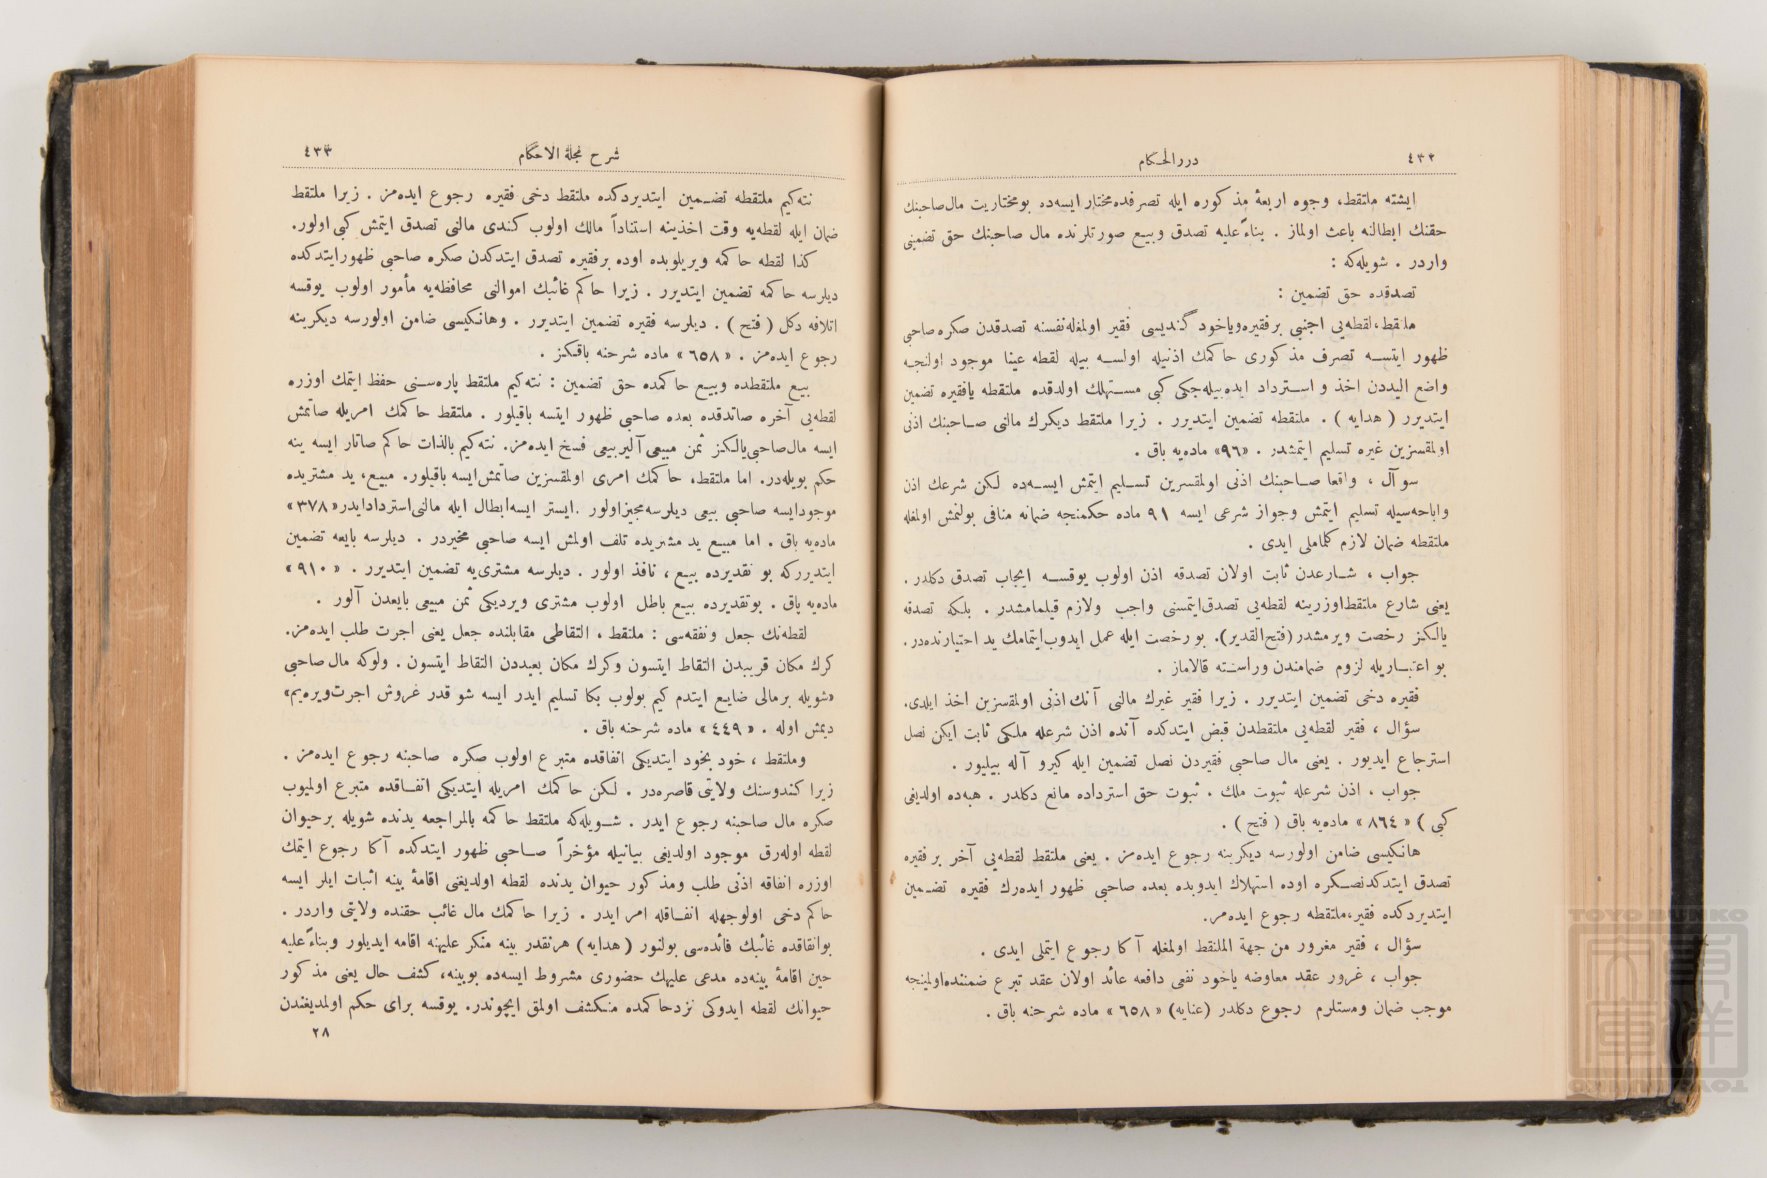 ٤٣٢
دررالحكام
ايشته ملتقط، وجوه اربعهٔ مذكوره ايله تصرفده مختار ايسه‌ده بومختاريت مال صاحبنك
حقنك ابطالنه باعث اولماز . بناءً عليه تصدق وبيع صورتلرنده مال صاحبنك حق تضمينى
واردر . شويله‌كه :
تصدقده حق تضمين :
ملتقط، لقطه‌يى اجنبى برفقيره‌وياخود كنديسى فقير اولمغله‌نفسنه تصدقدن صكره صاحبى
ظهور ايتسه تصرف مذكورى حاكمك اذنيله اولسه بيله لقطه عينا موجود اولنجه
واضع اليددن اخذ و استرداد ايده‌بيله‌جكى كبى مستهلك اولدقده ملتقطه يافقيره تضمين
ايتديرر ( هدايه ) . ملتقطه تضمين ايتديرر . زيرا ملتقط ديكرك مالنى صاحبنك اذنى
اولمقسزين غيره تسليم ايتمشدر . «٩٦» ماده‌يه باق .
سوآل ، واقعا صاحبنك اذنى اولمقسزين تسليم ايتمش ايسه‌ده لكن شرعك اذن
واباحه‌سيله تسليم ايتمش وجواز شرعى ايسه ٩١ ماده حكمنجه ضمانه منافى بولنمش اولمغله
ملتقطه ضمان لازم كلماملى ايدى .
جواب ، شارعدن ثابت اولان تصدقه اذن اولوب يوقسه ايجاب تصدق دكلدر .
يعنى شارع ملتقط‌اوزرينه لقطه‌يى تصدق‌ايتمسنى واجب ولازم قيلمامشدر . بلكه تصدقه
يالكز رخصت ويرمشدر(فتح‌القدير). بو رخصت ايله عمل ايدوب‌ايتمامك يد اختيارنده‌در.
بو اعتباريله لزوم ضماندن وراسته قالاماز .
فقيره دخى تضمين ايتديرر . زيرا فقير غيرك مالنى آنك اذنى اولمقسزين اخذ ايلدى.
سؤال ، فقير لقطه‌يى ملتقطدن قبض ايتدكده آنده اذن شرعله ملكى ثابت ايكن نصل
استرجاع ايديور . يعنى مال صاحبى فقيردن نصل تضمين ايله كيرو آله بيليور .
جواب ، اذن شرعله ثبوت ملك . ثبوت حق استرداده مانع دكلدر . هبه‌ده اولديغى
كبى ) « ٨٦٤ » ماده‌يه باق ( فتح ) .
هانكيسى ضامن اولورسه ديكرينه رجوع ايده‌مز . يعنى ملتقط لقطه‌يى آخر بر فقيره
تصدق ايتدكدنصكره اوده استهلاك ايدوبده بعده صاحبى ظهور ايده‌رك فقيره تضمين
ايتديردكده فقير،ملتقطه رجوع ايده‌مز.
سؤال ، فقير مغرور من جهة الملتقط اولمغله آكا رجوع ايتملى ايدى .
جواب ، غرور عقد معاوضه ياخود نفعى دافعه عائد اولان عقد تبرع ضمننده‌اولمينجه
موجب ضمان ومستلزم رجوع دكلدر (عنايه) « ٦٥٨ » ماده شرحنه باق .
شرح مجلة الاحكام
٤٣٣
نته‌كيم ملتقطه تضمين ايتديردكده ملتقط دخى فقيره رجوع ايده‌مز . زيرا ملتقط
ضمان ايله لقطه‌يه وقت اخذينه استناداً مالك اولوب كندى مالنى تصدق ايتمش كبى اولور.
كذا لقطه حاكمه ويريلوبده اوده برفقيره تصدق ايتدكدن صكره صاحبى ظهورايتدكده
ديلرسه حاكمه تضمين ايتديرر . زيرا حاكم غائبك اموالنى محافظه‌يه مأمور اولوب يوقسه
اتلافه دكل ( فتح ) . ديلرسه فقيره تضمين ايتديرر . وهانكيسى ضامن اولورسه ديكرينه
رجوع ايده‌مز . « ٦٥٨ » ماده شرحنه باقكز .
بيع ملتقطده وبيع حاكمده حق تضمين : نته‌كيم ملتقط پاره‌سنى حفظ ايتمك اوزره
لقطه‌يى آخره صاتدقده بعده صاحبى ظهور ايتسه باقيلور . ملتقط حاكمك امريله صاتمش
ايسه مال‌صاحبى‌يالكز ثمن مبيعى آلير‌بيعى فسخ ايده‌مز. نته‌كيم بالذات حاكم صاتار ايسه ينه
حكم بويله‌در. اما ملتقط، حاكمك امرى اولمقسزين صاتمش‌ايسه باقيلور. مبيع، يد مشتريده
موجودايسه صاحبى بيعى ديلرسه‌مجيزاولور .ايستر ايسه‌ابطال ايله مالنى‌استردادايدر« ٣٧٨ »
ماده‌يه باق . اما مبيع يد مشتريده تلف اولمش ايسه صاحبى مخيردر . ديلرسه بايعه تضمين
ايتديرركه بو تقديرده بيع ، نافذ اولور . ديلرسه مشترى‌يه تضمين ايتديرر . « ٩١٠ »
ماده‌يه باق . بوتقديرده بيع باطل اولوب مشترى ويرديكى ثمن مبيعى بايعدن آلور .
لقطه‌نك جعل ونفقه‌سى : ملتقط ، التقاطى مقابلنده جعل يعنى اجرت طلب ايده‌مز.
كرك مكان قريبدن التقاط ايتسون وكرك مكان بعيددن التقاط ايتسون . ولوكه مال صاحبى
«شويله برمالى ضايع ايتدم كيم بولوب بكا تسليم ايدر ايسه شو قدر غروش اجرت‌ويره‌يم»
ديمش اوله . « ٤٤٩ » ماده شرحنه باق .
وملتقط ، خود بخود ايتديكى انفاقده متبرع اولوب صكره صاحبنه رجوع ايده‌مز .
زيرا كندوسنك ولايتى قاصره‌در . لكن حاكمك امريله ايتديكى انفاقده متبرع اولميوب
صكره مال صاحبنه رجوع ايدر . شويله‌كه ملتقط حاكمه بالمراجعه يدنده شويله برحيوان
لقطه اوله‌رق موجود اولديغى بيانيله مؤخراً صاحبى ظهور ايتدكده آكا رجوع ايتمك
اوزره انفاقه اذنى طلب ومذكور حيوان يدنده لقطه اولديغنى اقامهٔ بينه اثبات ايلر ايسه
حاكم دخى اولوجهله انفاقله امر ايدر . زيرا حاكمك مال غائب حقنده ولايتى واردر .
بوانفاقده غائبك فائده‌سى بولنور ( هدايه ) هرنقدر بينه منكر عليهنه اقامه ايديلور وبناءً عليه
حين اقامهٔ بينه‌ده مدعى عليهك حضورى مشروط ايسه‌ده بوبينه، كشف حال يعنى مذكور
حيوانك لقطه ايدوكى نزدحاكمده منكشف اولمق ايچوندر. يوقسه براى حكم اولمديغندن
٢٨
TOYO BUNKO
東洋文庫
TOYO BUNKO